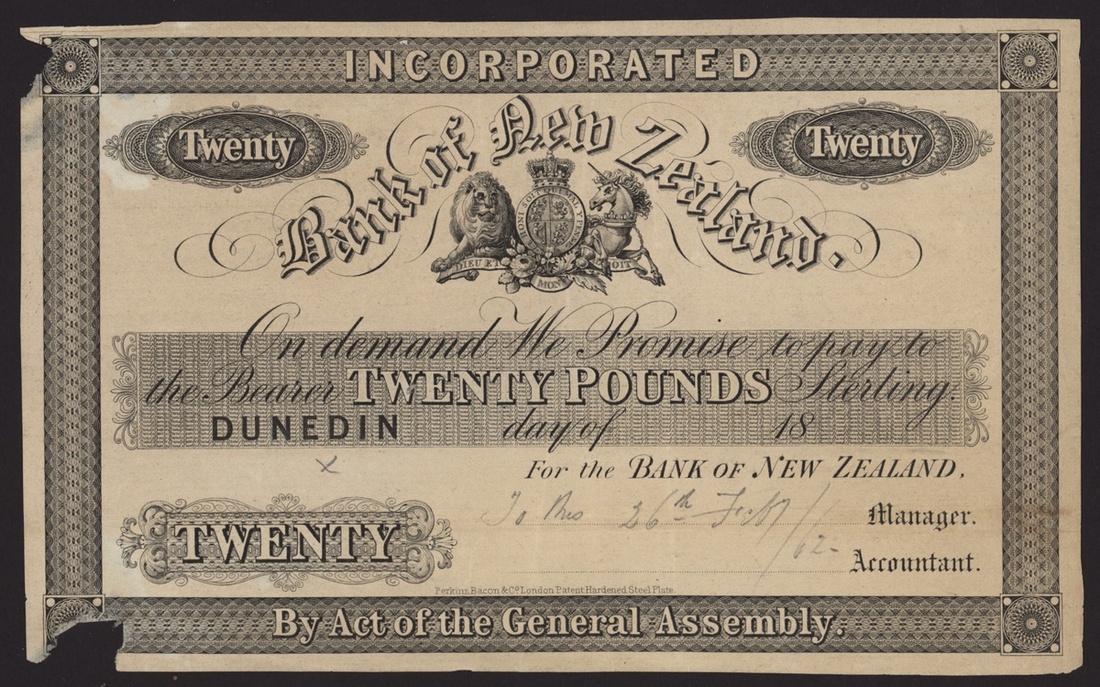 INCORPORATED
Twenty
Twenty
Bank of New Zealand.
HONI SOIT QUI MAL Y
DIEU ET MON DROIT
On demand We Promise to pay to
the Bearer TWENTY POUNDS Sterling.
DUNEDIN day of 18
x
For the BANK OF NEW ZEALAND,
26th Feby / Manager.
/62 Accountant.
TWENTY
Perkins, Bacon & Co. London Patent Hardened Steel Plate.
By Act of the General Assembly.